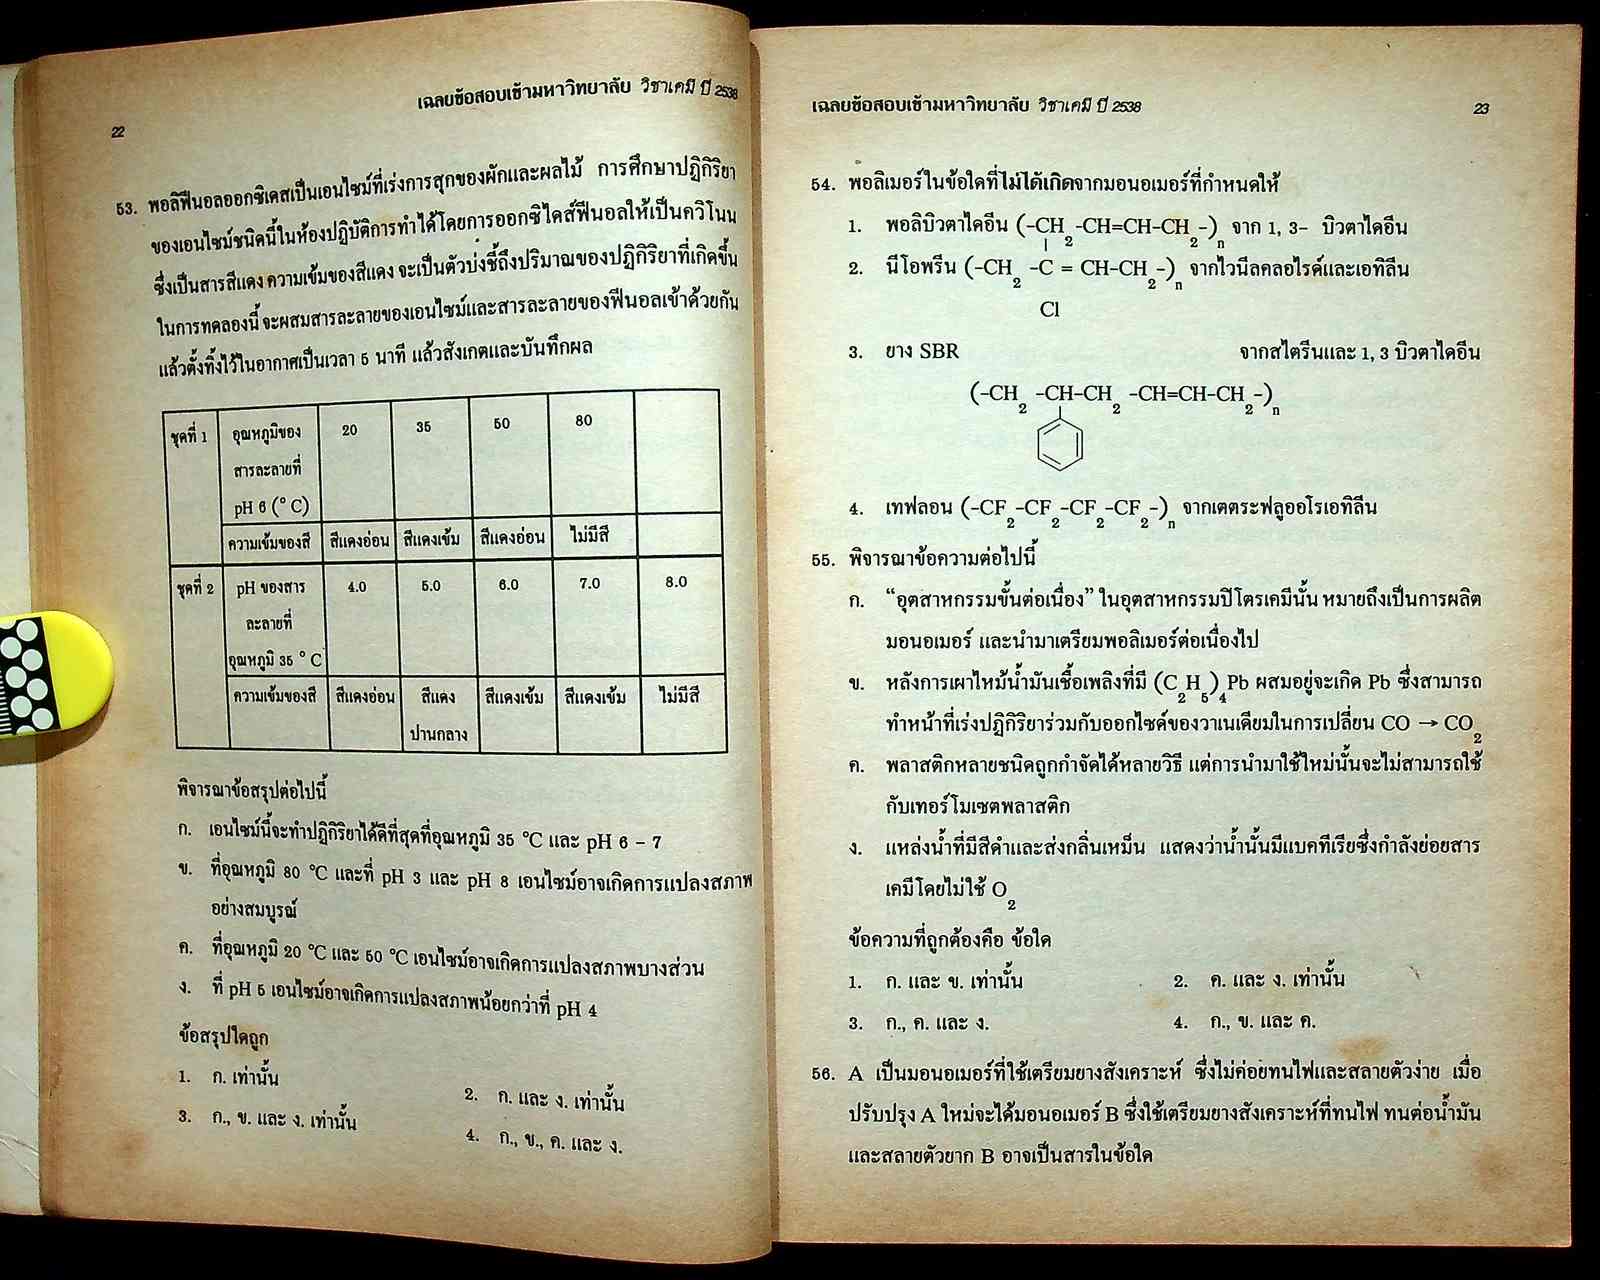 22
เฉลยข้อสอบเข้ามหาวิทยาลัย วิชาเคมี ปี 2538
53. พอลิฟีนอลออกซิเดสเป็นเอนไซม์ที่เร่งการสุกของผักและผลไม้ การศึกษาปฏิกิริยา
ของเอนไซม์ชนิดนี้ในห้องปฏิบัติการทำได้โดยการออกซิไดส์ฟีนอลให้เป็นควิโนน
ซึ่งเป็นสารสีแดง ความเข้มของสีแดง จะเป็นตัวบ่งชี้ถึงปริมาณของปฏิกิริยาที่เกิดขึ้น
ในการทดลองนี้ จะผสมสารละลายของเอนไซม์และสารละลายของฟีนอลเข้าด้วยกัน
แล้วตั้งทิ้งไว้ในอากาศเป็นเวลา 5 นาที แล้วสังเกตและบันทึกผล
ชุดที่ 1 อุณหภูมิของ 20 35 50 80
สารละลายที่
pH 6 (° C)
ความเข้มของสี สีแดงอ่อน สีแดงเข้ม สีแดงอ่อน ไม่มีสี
ชุดที่ 2 pH ของสาร 4.0 5.0 6.0 7.0 8.0
ละลายที่
อุณหภูมิ 35 ° C
ความเข้มของสี สีแดงอ่อน สีแดง สีแดงเข้ม สีแดงเข้ม ไม่มีสี
ปานกลาง
พิจารณาข้อสรุปต่อไปนี้
ก. เอนไซม์นี้จะทำปฏิกิริยาได้ดีที่สุดที่อุณหภูมิ 35 °C และ pH 6 – 7
ข. ที่อุณหภูมิ 80 °C และที่ pH 3 และ pH 8 เอนไซม์อาจเกิดการแปลงสภาพ
อย่างสมบูรณ์
ค. ที่อุณหภูมิ 20 °C และ 50 °C เอนไซม์อาจเกิดการแปลงสภาพบางส่วน
ง. ที่ pH 5 เอนไซม์อาจเกิดการแปลงสภาพน้อยกว่าที่ pH 4
ข้อสรุปใดถูก
1. ก. เท่านั้น
2. ก. และ ง. เท่านั้น
3. ก., ข. และ ง. เท่านั้น
4. ก., ข., ค. และ ง.
เฉลยข้อสอบเข้ามหาวิทยาลัย วิชาเคมี ปี 2538
23
54. พอลิเมอร์ในข้อใดที่ไม่ได้เกิดจากมอนอเมอร์ที่กำหนดให้
1. พอลิบิวตาไดอีน (-CH₂-CH=CH-CH₂-)ₙ จาก 1, 3– บิวตาไดอีน
2. นีโอพรีน (-CH₂ -C = CH-CH₂-)ₙ จากไวนีลคลอไรด์และเอทิลีน
Cl
3. ยาง SBR จากสไตรีนและ 1, 3 บิวตาไดอีน
(-CH₂ -CH-CH₂ -CH=CH-CH₂-)ₙ
4. เทฟลอน (-CF₂-CF₂-CF₂-CF₂-)ₙ จากเตตระฟลูออโรเอทิลีน
55. พิจารณาข้อความต่อไปนี้
ก. “อุตสาหกรรมขั้นต่อเนื่อง” ในอุตสาหกรรมปิโตรเคมีนั้น หมายถึงเป็นการผลิต
มอนอเมอร์ และนำมาเตรียมพอลิเมอร์ต่อเนื่องไป
ข. หลังการเผาไหม้น้ำมันเชื้อเพลิงที่มี (C₂H₅)₄Pb ผสมอยู่จะเกิด Pb ซึ่งสามารถ
ทำหน้าที่เร่งปฏิกิริยาร่วมกับออกไซด์ของวาเนเดียมในการเปลี่ยน CO → CO₂
ค. พลาสติกหลายชนิดถูกกำจัดได้หลายวิธี แต่การนำมาใช้ใหม่นั้นจะไม่สามารถใช้
กับเทอร์โมเซตพลาสติก
ง. แหล่งน้ำที่มีสีดำและส่งกลิ่นเหม็น แสดงว่าน้ำนั้นมีแบคทีเรียซึ่งกำลังย่อยสาร
เคมีโดยไม่ใช้ O₂
ข้อความที่ถูกต้องคือ ข้อใด
1. ก. และ ข. เท่านั้น 2. ค. และ ง. เท่านั้น
3. ก., ค. และ ง. 4. ก., ข. และ ค.
56. A เป็นมอนอเมอร์ที่ใช้เตรียมยางสังเคราะห์ ซึ่งไม่ค่อยทนไฟและสลายตัวง่าย เมื่อ
ปรับปรุง A ใหม่จะได้มอนอเมอร์ B ซึ่งใช้เตรียมยางสังเคราะห์ที่ทนไฟ ทนต่อน้ำมัน
และสลายตัวยาก B อาจเป็นสารในข้อใด